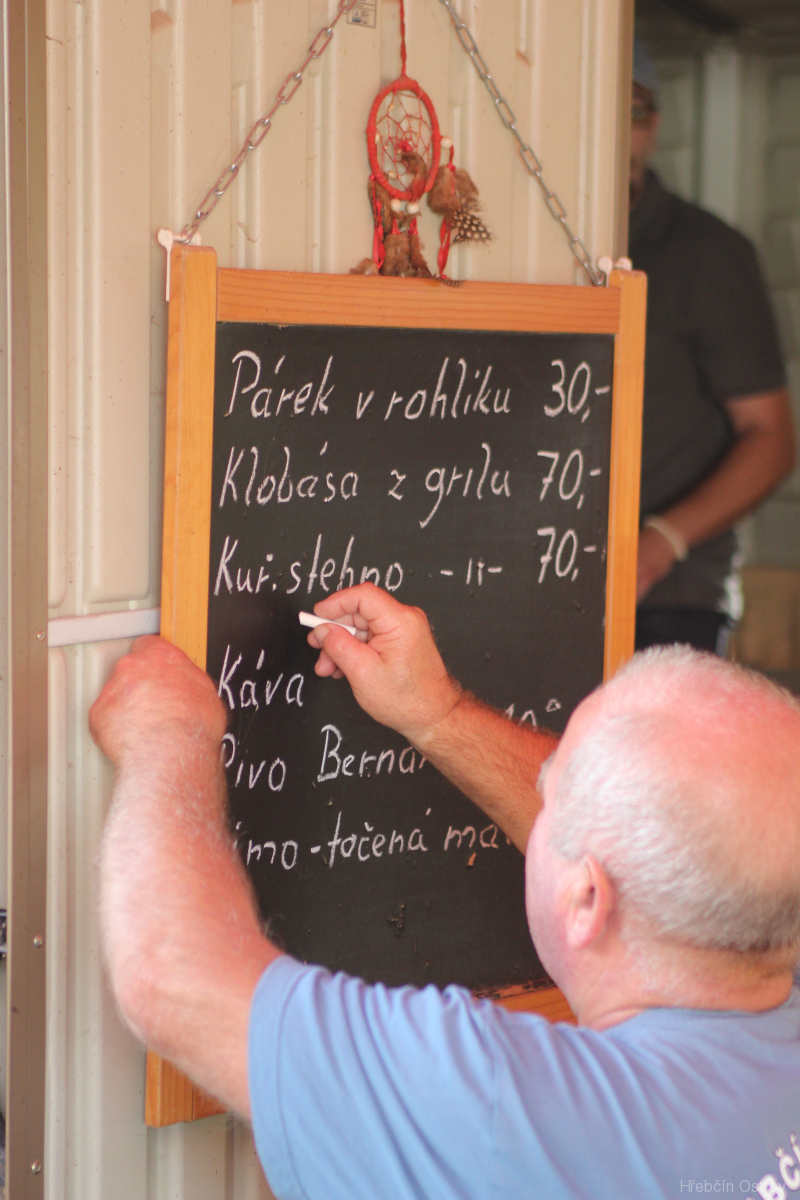 Párek v rohliku 30,-
Klobása z grilu 70,-
Kuř. stehno -11- 70,-
Káva
Pivo 10°
točená
Hřebčín